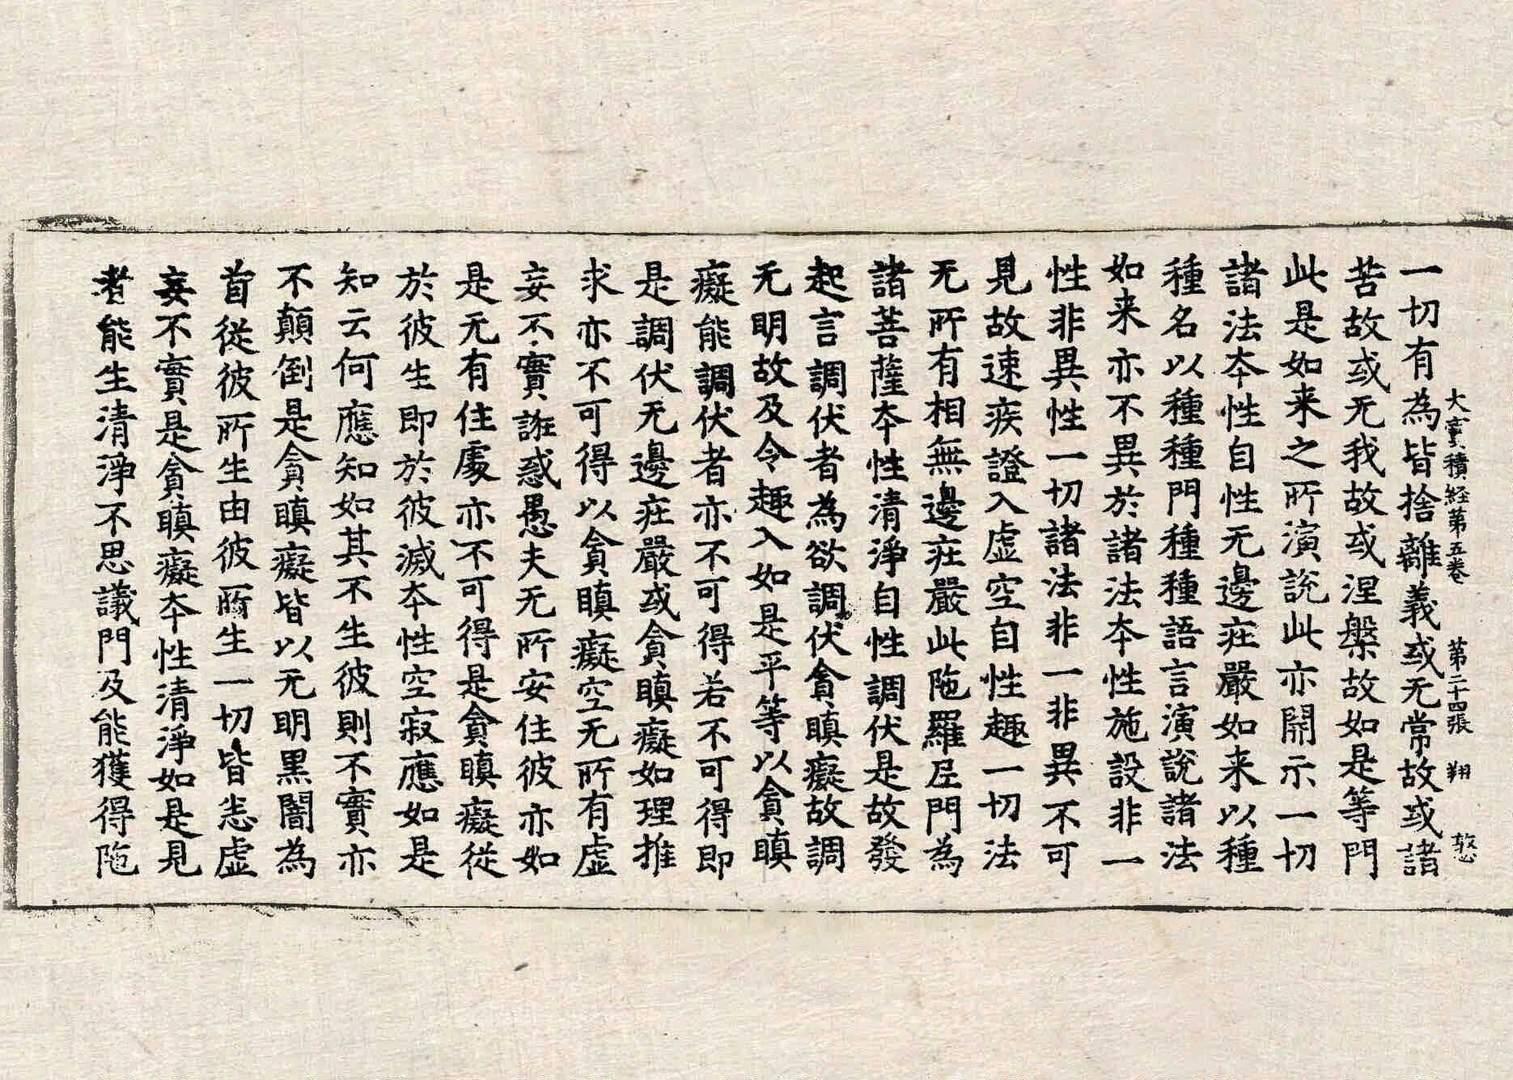 大寶積経第五卷 第二十四張 翔
一切有為皆捨離義或无常故或諸
苦故或无我故或涅槃故如是等門
此是如来之所演說此亦開示一切
諸法夲性自性无邊莊嚴如来以種
種名以種種門種種語言演說諸法
如来亦不異於諸法夲性施設非一
性非異性一切諸法非一非異不可
見故速疾證入虛空自性趣一切法
无所有相無邊莊嚴此陁羅尼門為
諸菩薩夲性清淨自性調伏是故發
起言調伏者為欲調伏貪瞋癡故調
无明故及令趣入如是平等以貪瞋
癡能調伏者亦不可得若不可得即
是調伏无邊莊嚴或貪瞋癡如理推
求亦不可得以貪瞋癡空无所有虛
妄不實誑惑愚夫无所安住彼亦如
是无有住處亦不可得是貪瞋癡從
於彼生即於彼滅夲性空寂應如是
知云何應知如其不生彼則不實亦
不顛倒是貪瞋癡皆以无明黑闇為
首從彼所生由彼所生一切皆悉虛
妄不實是貪瞋癡夲性清淨如是見
者能生清淨不思議門及能獲得陁